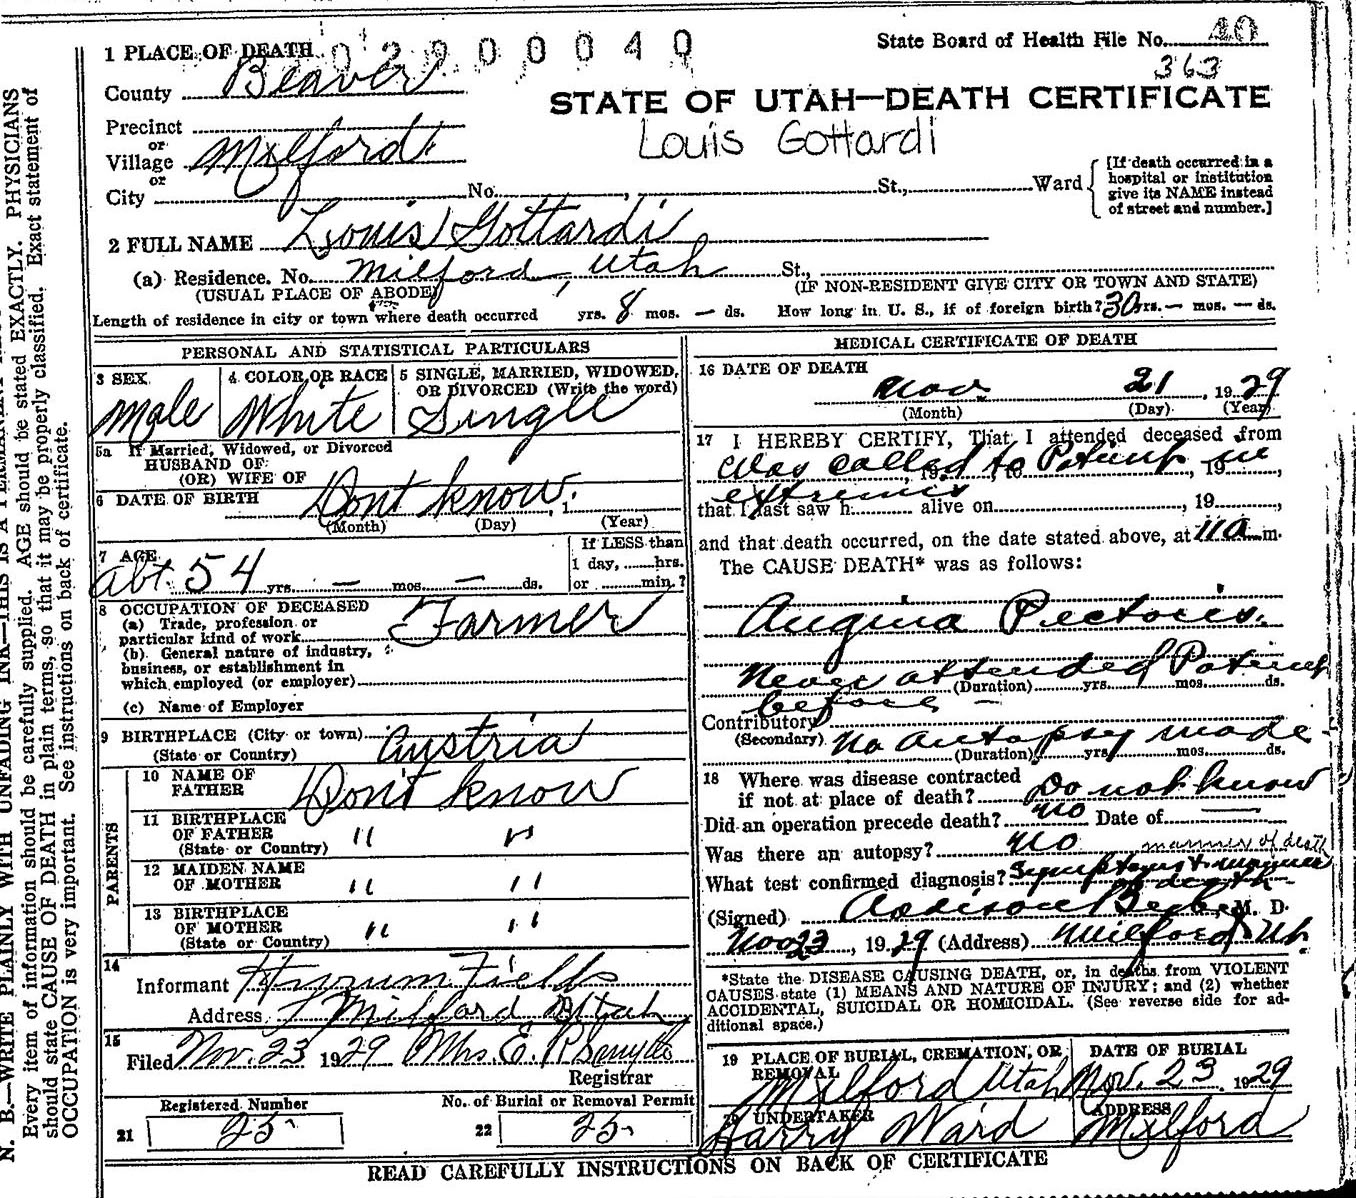 1 PLACE OF DEATH 02900040
State Board of Health File No. 40
363
County Beaver
STATE OF UTAH—DEATH CERTIFICATE
Precinct
Louis Gottardi
or
Village Milford
or
City No. St., Ward
[If death occurred in a
hospital or institution
give its NAME instead
of street and number.]
2 FULL NAME Louis Gottardi
(a) Residence. No. Milford, Utah St.,
(USUAL PLACE OF ABODE) (IF NON-RESIDENT GIVE CITY OR TOWN AND STATE)
Length of residence in city or town where death occurred yrs. 8 mos. — ds. How long in U. S., if of foreign birth? 30 yrs. — mos. — ds.
PERSONAL AND STATISTICAL PARTICULARS
3 SEX
Male
4 COLOR OR RACE
White
5 SINGLE, MARRIED, WIDOWED,
OR DIVORCED (Write the word)
Single
5a If Married, Widowed, or Divorced
HUSBAND OF
(OR) WIFE OF
6 DATE OF BIRTH Dont know.
(Month) (Day) (Year)
7 AGE
abt. 54 yrs. — mos. — ds.
If LESS than
1 day, hrs.
or min.?
8 OCCUPATION OF DECEASED
(a) Trade, profession or
particular kind of work Farmer
(b) General nature of industry,
business, or establishment in
which employed (or employer)
(c) Name of Employer
9 BIRTHPLACE (City or town) Austria
(State or Country)
PARENTS
10 NAME OF
FATHER Don't know
11 BIRTHPLACE
OF FATHER " "
(State or Country)
12 MAIDEN NAME
OF MOTHER " "
13 BIRTHPLACE
OF MOTHER " "
(State or Country)
14
Informant Hyrum Fields
Address Milford Utah
15
Filed Nov. 23 1929 Mrs. E. P. Smyth
Registrar
Registered Number
21 25
No. of Burial or Removal Permit
22 25
MEDICAL CERTIFICATE OF DEATH
16 DATE OF DEATH
Nov. 21, 1929
(Month) (Day) (Year)
17 I HEREBY CERTIFY, That I attended deceased from
Was called to Patient in, 19, to, 19,
extremis
that I last saw h alive on, 19,
and that death occurred, on the date stated above, at 11 a. m.
The CAUSE DEATH* was as follows:
Angina Pectoris.
Never attended Patient
(Duration) yrs. mos. ds.
before —
Contributory
(Secondary) No autopsy made.
(Duration) yrs. mos. ds.
18 Where was disease contracted
if not at place of death? Do not know
Did an operation precede death? No Date of —
Was there an autopsy? No manner of death
What test confirmed diagnosis? Symptoms & manner
of death
(Signed) Addison, M. D.
Nov 23, 1929 (Address) Milford Ut.
*State the DISEASE CAUSING DEATH, or, in deaths from VIOLENT
CAUSES state (1) MEANS AND NATURE OF INJURY; and (2) whether
ACCIDENTAL, SUICIDAL OR HOMICIDAL. (See reverse side for ad-
ditional space.)
19 PLACE OF BURIAL, CREMATION, OR
REMOVAL
Milford Utah
DATE OF BURIAL
Nov. 23, 1929
20 UNDERTAKER
Harry Ward
ADDRESS
Milford
READ CAREFULLY INSTRUCTIONS ON BACK OF CERTIFICATE
N. B.—WRITE PLAINLY WITH UNFADING INK—THIS IS A PERMANENT
Every item of information should be carefully supplied. AGE should be stated EXACTLY. PHYSICIANS
should state CAUSE OF DEATH in plain terms, so that it may be properly classified. Exact statement of
OCCUPATION is very important. See instructions on back of certificate.